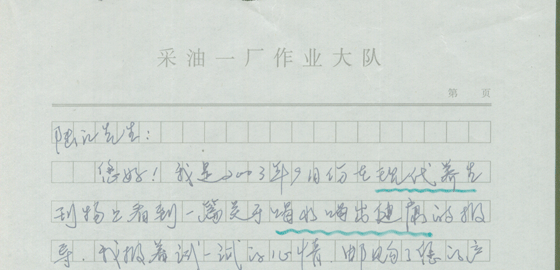 采油一厂作业大队
第 页
陆江先生:
您好!我是2003年9月份在现代养生
刊物上看到一篇关于喝水喝出健康的报
导.我报着试一试的心情.邮购了您的产